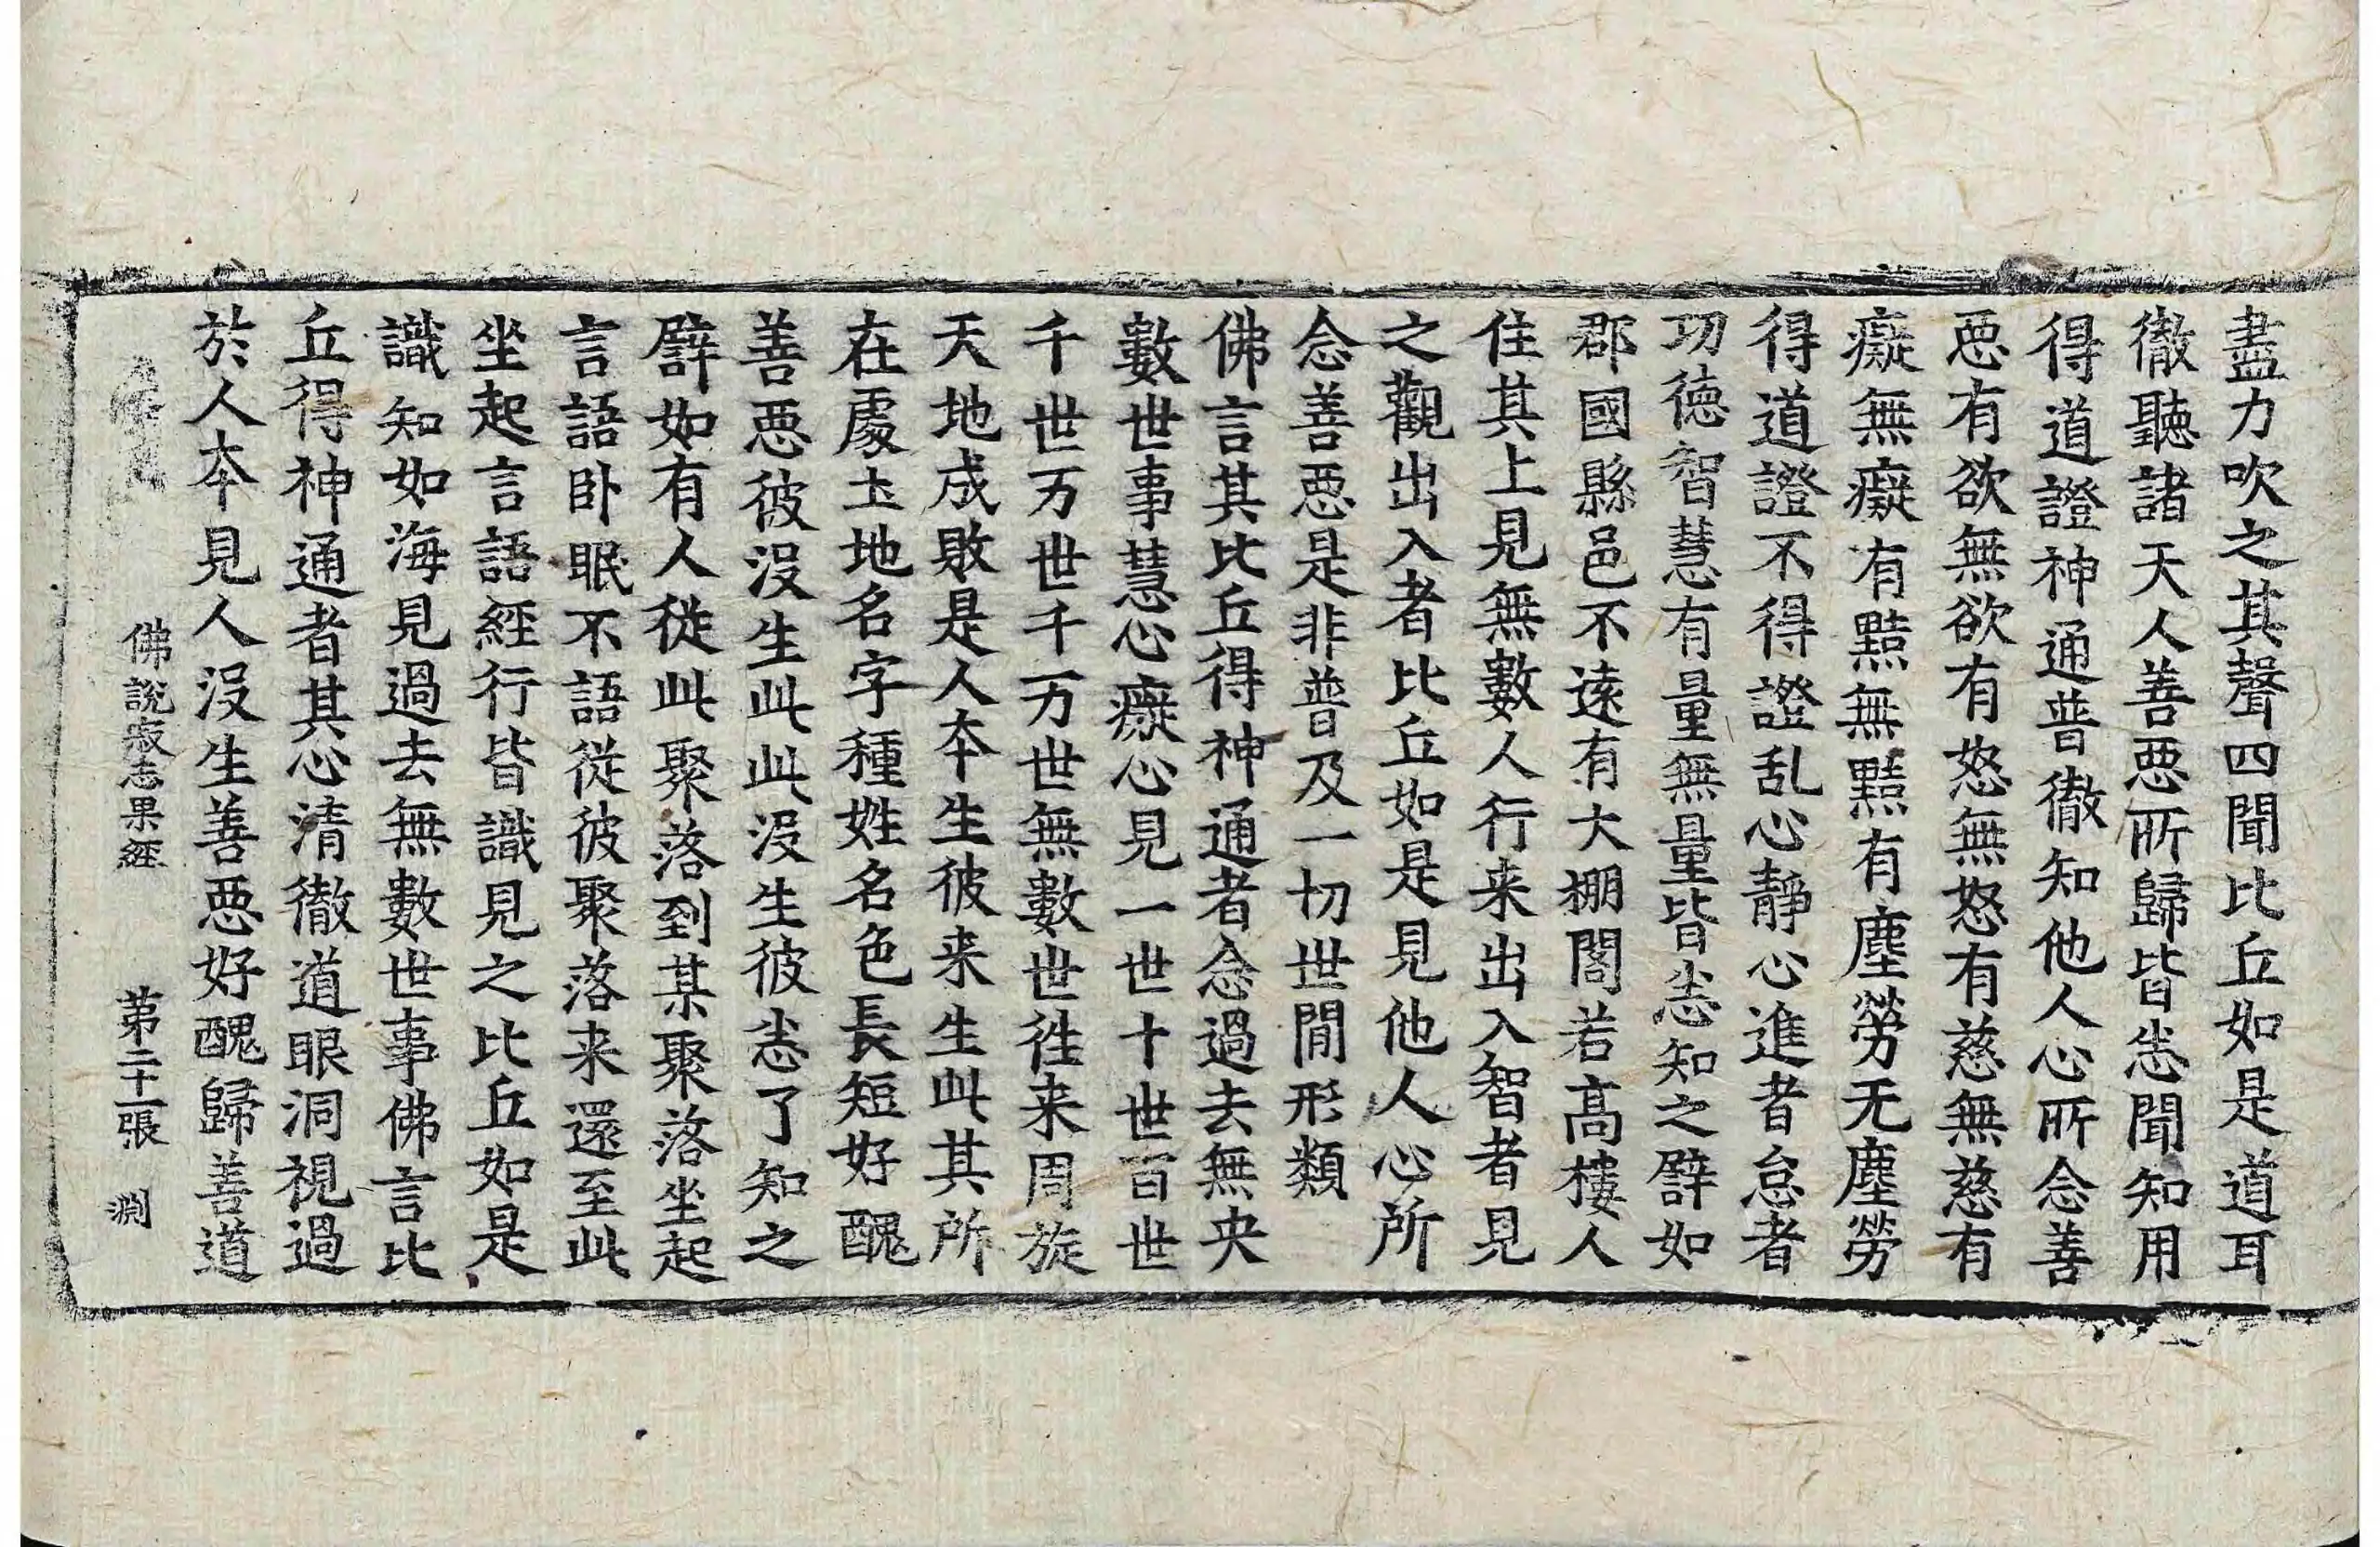 盡力吹之其聲四聞比丘如是道耳
徹聽諸天人善惡所歸皆悉聞知用
得道證神通普徹知他人心所念善
惡有欲無欲有怒無怒有慈無慈有
癡無癡有黠無黠有塵勞无塵勞
得道證不得證乱心靜心進者怠者
功德智慧有量無量皆悉知之譬如
郡國縣邑不遠有大棚閣若高樓人
住其上見無數人行来出入智者見
之觀出入者比丘如是見他人心所
念善惡是非普及一切世間形類
佛言其比丘得神通者念過去無央
數世事慧心癡心見一世十世百世
千世万世千万世無數世往来周旋
天地成敗是人本生彼来生此其所
在處土地名字種姓名色長短好醜
善惡彼沒生此此沒生彼悉了知之
譬如有人從此聚落到某聚落坐起
言語卧眠不語從彼聚落来還至此
坐起言語經行皆識見之比丘如是
識知如海見過去無數世事佛言比
丘得神通者其心清徹道眼洞視過
於人本見人沒生善惡好醜歸善道
佛說寂志果經 第二十一張 淵